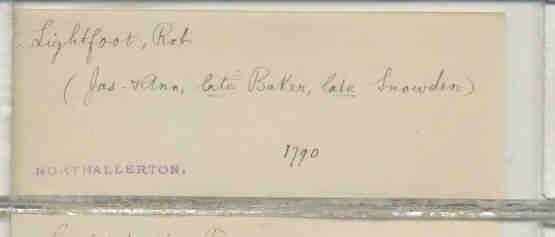 Lightfoot, Rob
(Jas. & Ann, late Baker, late Snowden)
1790
NORTHALLERTON.